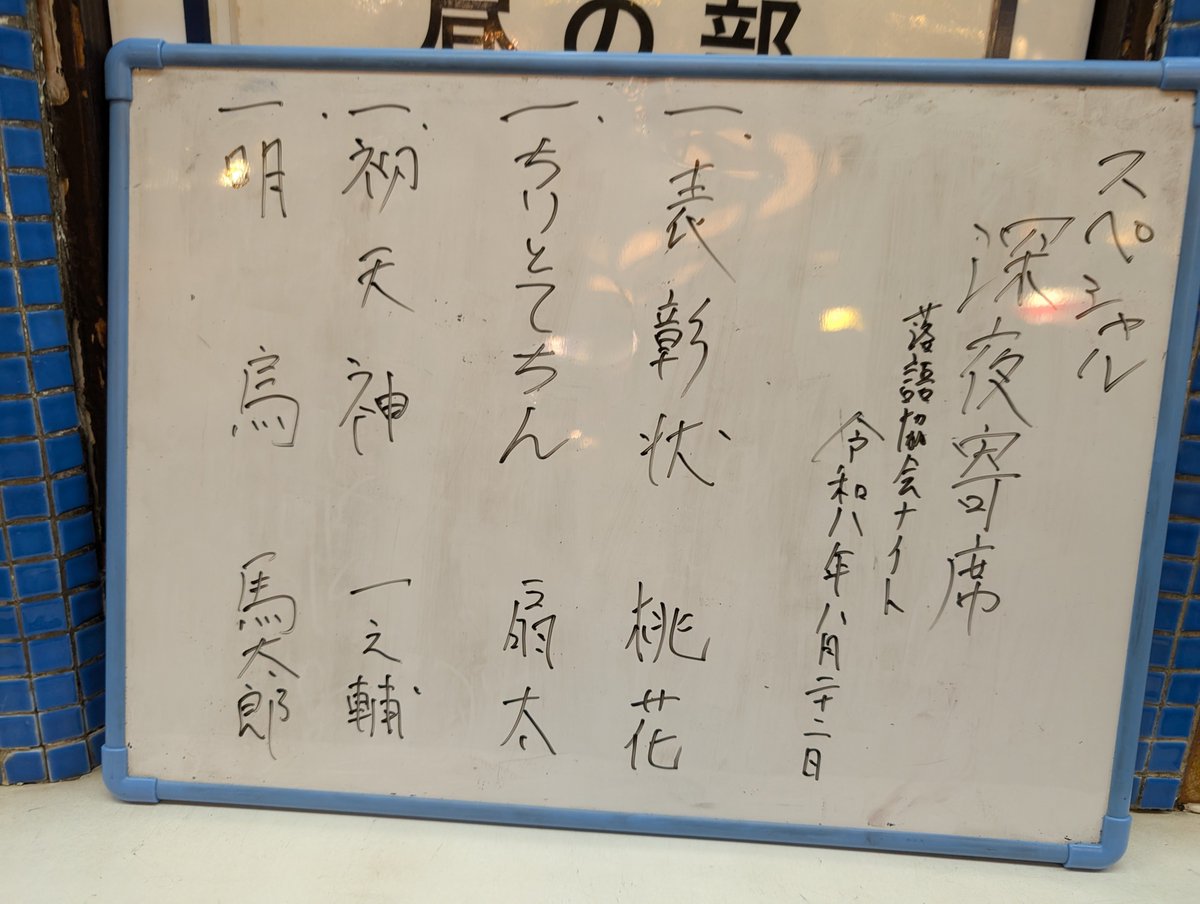 昼の部
スペシャル
深夜寄席
落語協会ナイト
令和八年八月二十二日
一、表彰状 桃花
一、ちりとてちん 扇太
一、初天神 一之輔
一、明烏 馬太郎